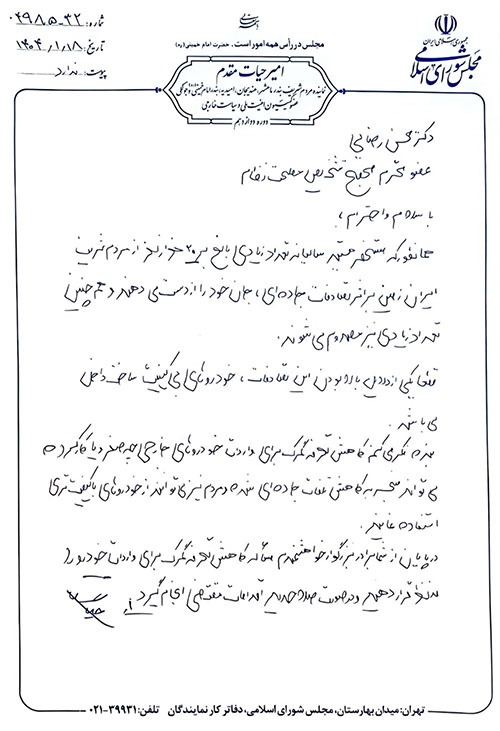 جمهوری اسلامی ایران
مجلس شورای اسلامی
شماره: ۰۴۹۸۵-۴۲
تاریخ: ۱۴۰۴/۱/۱۸
پیوست: ندارد
مجلس در رأس همه امور است. حضرت امام خمینی (ره)
امیر حیات مقدم
نماینده مردم شریف بندر ماهشهر، هندیجان، امیدیه، بندر امام خمینی و جولکی
عضو کمیسیون امنیت ملی و سیاست خارجی
دوره دوازدهم
دکتر محسن رضایی
عضو محترم مجمع تشخیص مصلحت نظام
با سلام و احترام؛
همانطور که مستحضر هستید سالیانه تعداد زیادی بالغ بر ۲۰ هزار نفر از مردم شریف
ایران زمین بر اثر تصادفات جاده‌ای، جان خود را از دست می دهند و هم چنین
تعداد زیادی نیز مصدوم می شوند.
قطعا یکی از دلایل بالا بودن این تصادفات، خودروهای بی کیفیت ساخت داخل
می باشد.
بنده فکر می کنم کاهش تعرفه گمرک برای واردات خودروهای خارجی چه صفر و یا کارکرده
می تواند منجر به کاهش تلفات جاده ای شده و مردم نیز می توانند از خودروهای با کیفیت تری
استفاده نمایند.
در پایان از شما برادر بزرگوار خواهشمندم مسأله کاهش تعرفه گمرک برای واردات خودرو را
مدنظر قرار دهید و در صورت صلاحدید اقدامات مقتضی انجام گیرد.
تهران: میدان بهارستان، مجلس شورای اسلامی، دفاتر کار نمایندگان تلفن: ۳۹۹۳۱-۰۲۱